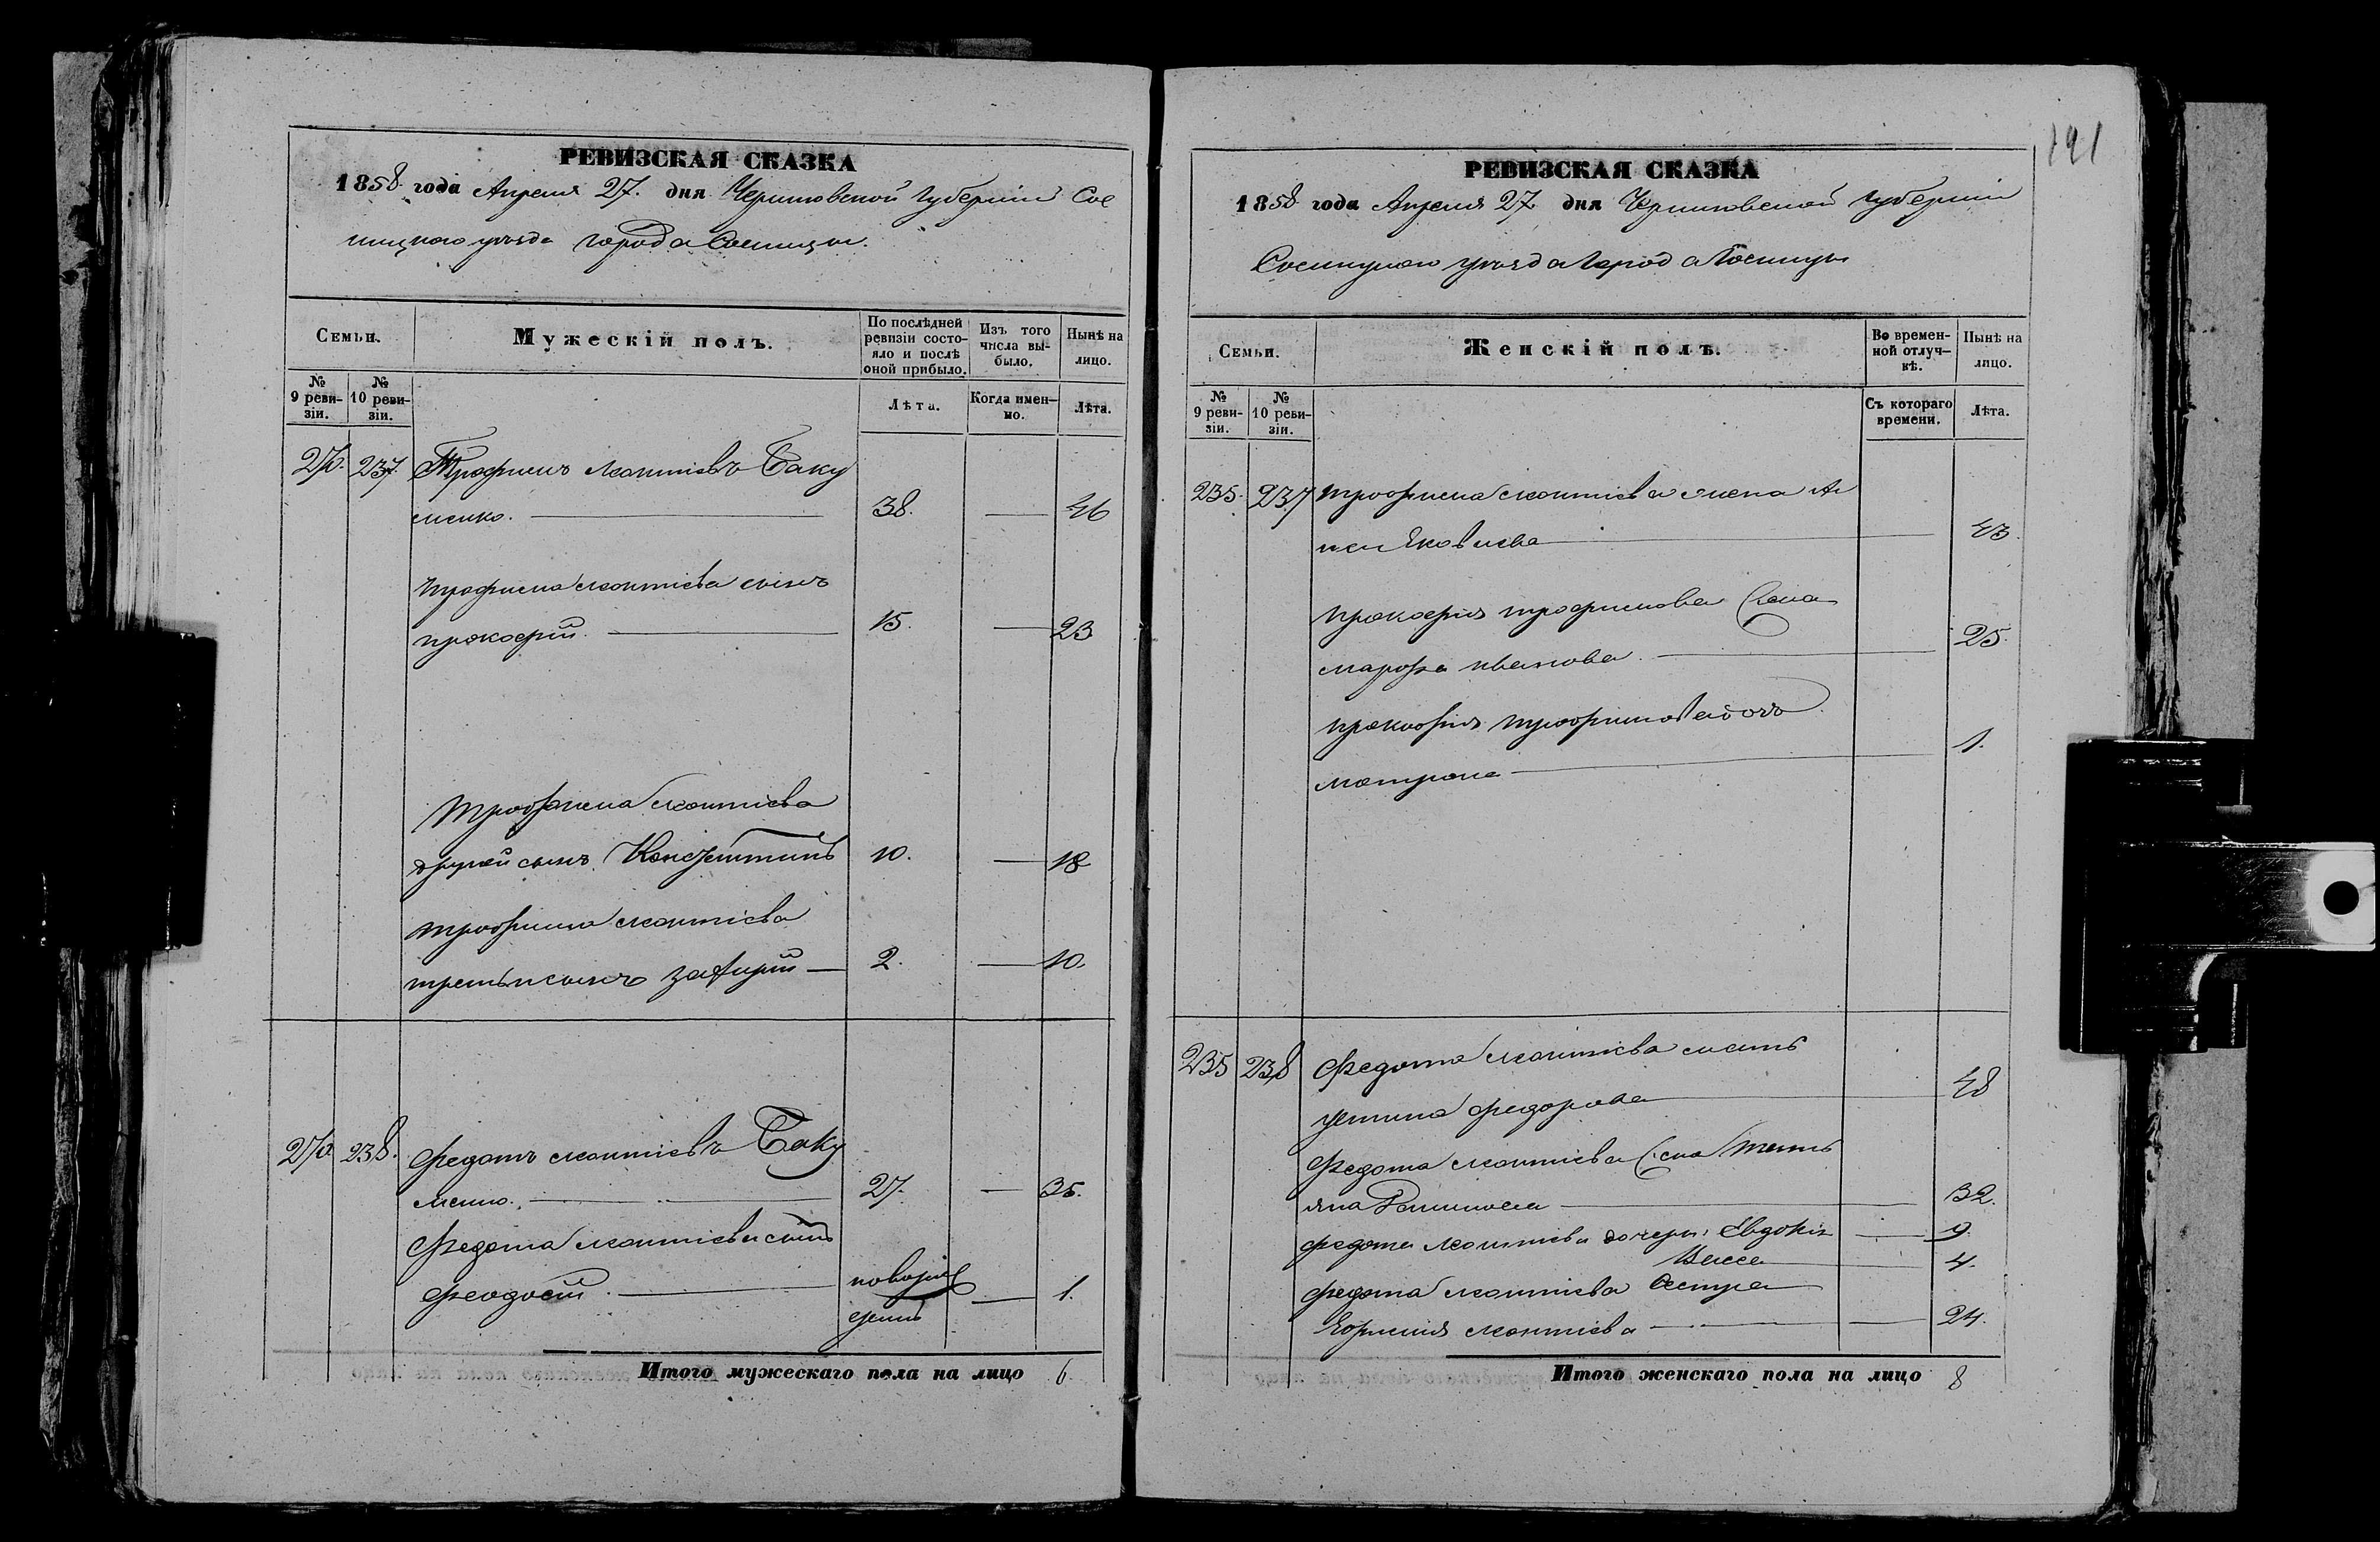 191
РЕВИЗСКАЯ СКАЗКА
1858 года Апреля 27. дня Черниговской губерніи Сос
ницкого уезда города Сосницы.
Семьи.
Мужескій полъ.
По послѣдней ревизіи состояло и послѣ оной прибыло.
Изъ того числа выбыло.
Нынѣ на лицо.
№ 9 ревизіи.
№ 10 ревизіи.
Лѣта.
Когда именно.
Лѣта.
237. Трофимъ Леонтіевъ Баку
менко. 38. — 46
трофима леонтіева сынъ
прокофій. 15. — 23
трофима леонтіева
другой сынъ Константинъ 10. — 18
трофима леонтіева
третьи сынъ 2. — 10.
238. федотъ леонтіевъ Баку
менко. 27. — 35.
федота леонтіева сынъ
феодосій. новорож
денъ — 1.
Итого мужескаго пола на лицо 6
РЕВИЗСКАЯ СКАЗКА
1858 года Апреля 27 дня Черниговской губерніи
Сосницкого уезда города Сосницы
Семьи.
Женскій полъ.
Во временной отлучкѣ.
Нынѣ на лицо.
№ 9 ревизіи.
№ 10 ревизіи.
Съ котораго времени.
Лѣта.
235. 237 трофима леонтіева жена
Яковлева 43.
прокофія трофимова жена
марфа иванова. 25.
прокофія трофимова дочь
матрона 1.
235 238 федота леонтіева мать
устина федорова 48
федота леонтіева жена Тать
яна 32.
федота леонтіева дочери: Евдокія — 9.
4.
федота леонтіева сестра
Ефимія леонтіева — 24.
Итого женскаго пола на лицо 8